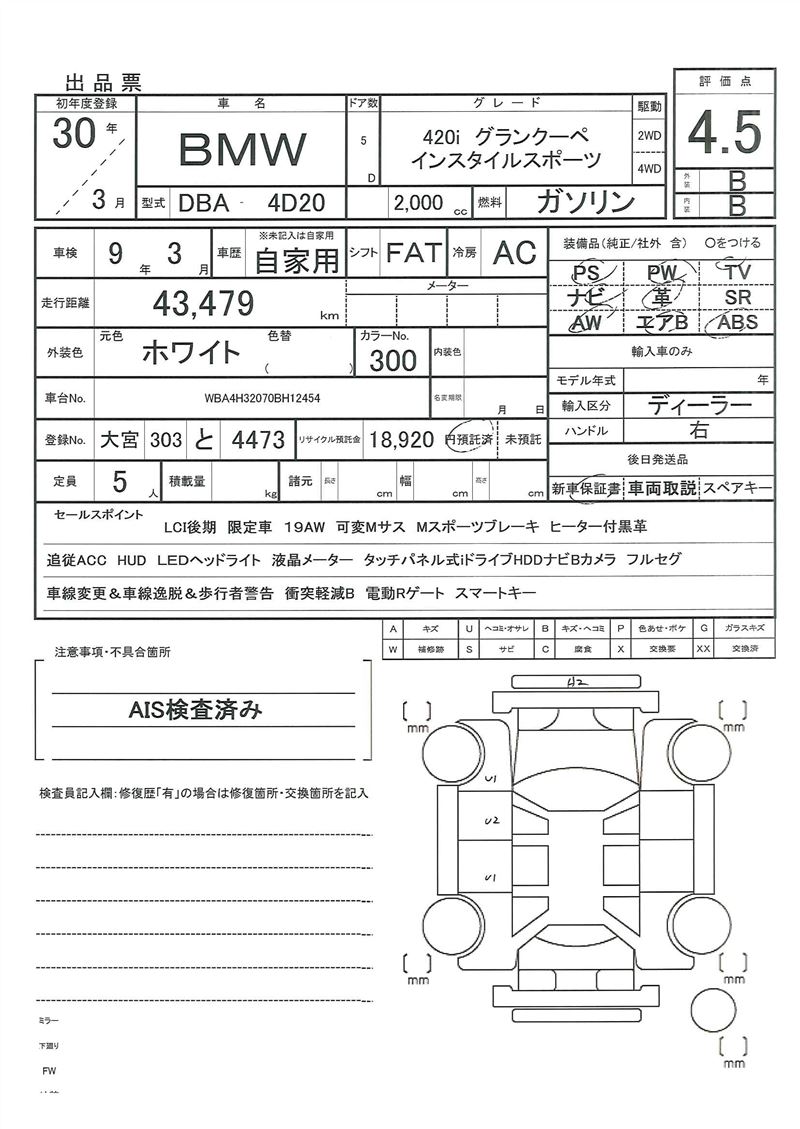 出品票
初年度登録 車名 ドア数 グレード 駆動 評価点
30年 BMW 5 D 420i グランクーペ 2WD 4.5
インスタイルスポーツ 4WD
3月 型式 DBA - 4D20 2,000 cc 燃料 ガソリン 外装 B
内装 B
車検 9年 3月 車歴 ※未記入は自家用 自家用 シフト FAT 冷房 AC 装備品(純正/社外 含) 〇をつける
PS PW TV
走行距離 43,479 km メーター ナビ 革 SR
AW エアB ABS
外装色 元色 ホワイト 色替 ( ) カラーNo. 300 内装色 輸入車のみ
モデル年式 年
車台No. WBA4H32070BH12454 名変期限 月 日 輸入区分 ディーラー
登録No. 大宮 303 と 4473 リサイクル預託金 18,920 円預託済 未預託 ハンドル 右
後日発送品
定員 5人 積載量 kg 諸元 長さ cm 幅 cm 高さ cm 新車保証書 車両取説 スペアキー
セールスポイント
LCI後期 限定車 19AW 可変Mサス Mスポーツブレーキ ヒーター付黒革
追従ACC HUD LEDヘッドライト 液晶メーター タッチパネル式iドライブHDDナビBカメラ フルセグ
車線変更&車線逸脱&歩行者警告 衝突軽減B 電動Rゲート スマートキー
A キズ U ヘコミ・オサレ B キズ・ヘコミ P 色あせ・ボケ G ガラスキズ
W 補修跡 S サビ C 腐食 X 交換要 XX 交換済
注意事項・不具合箇所
AIS検査済み
検査員記入欄:修復歴「有」の場合は修復箇所・交換箇所を記入
A2
[ ] mm [ ] mm
U1
U2
U1
[ ] mm [ ] mm
[ ] mm
ミラー
下廻り
FW